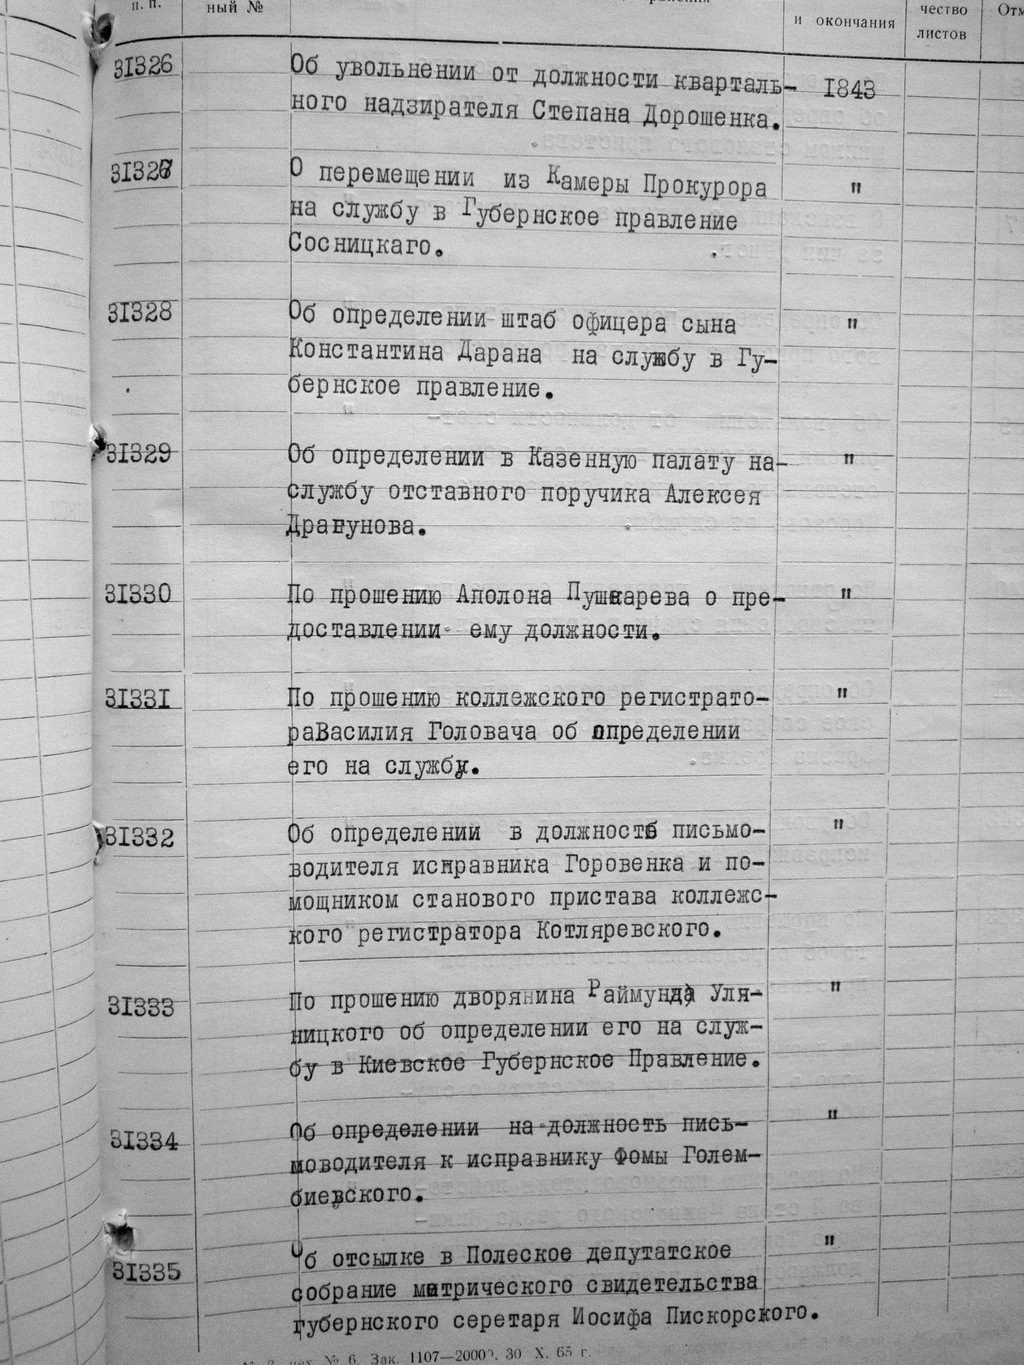 п. п.
ный №
и окончания
чество
листов
31326
Об увольнении от должности кварталь-
1843
ного надзирателя Степана Дорошенка.
31327
О перемещении из Камеры Прокурора
"
на службу в Губернское правление
Сосницкаго.
31328
Об определении штаб офицера сына
"
Константина Дарана на службу в Гу-
бернское правление.
31329
Об определении в Казенную палату на-
"
службу отставного поручика Алексея
Драгунова.
31330
По прошению Аполона Пушкарева о пре-
"
доставлении ему должности.
31331
По прошению коллежского регистрато-
"
раВасилия Головача об определении
его на службу.
31332
Об определении в должность письмо-
"
водителя исправника Горовенка и по-
мощником станового пристава коллежс-
кого регистратора Котляревского.
31333
По прошению дворянина Раймунда Уля-
"
ницкого об определении его на служ-
бу в Киевское Губернское Правление.
31334
Об определении на должность пись-
"
моводителя к исправнику Фомы Голем-
биевского.
31335
Об отсылке в Полеское депутатское
"
собрание метрического свидетельства
губернского серетаря Иосифа Пискорского.
№ 6. Зак. 1107—20000. 30 X. 65 г.